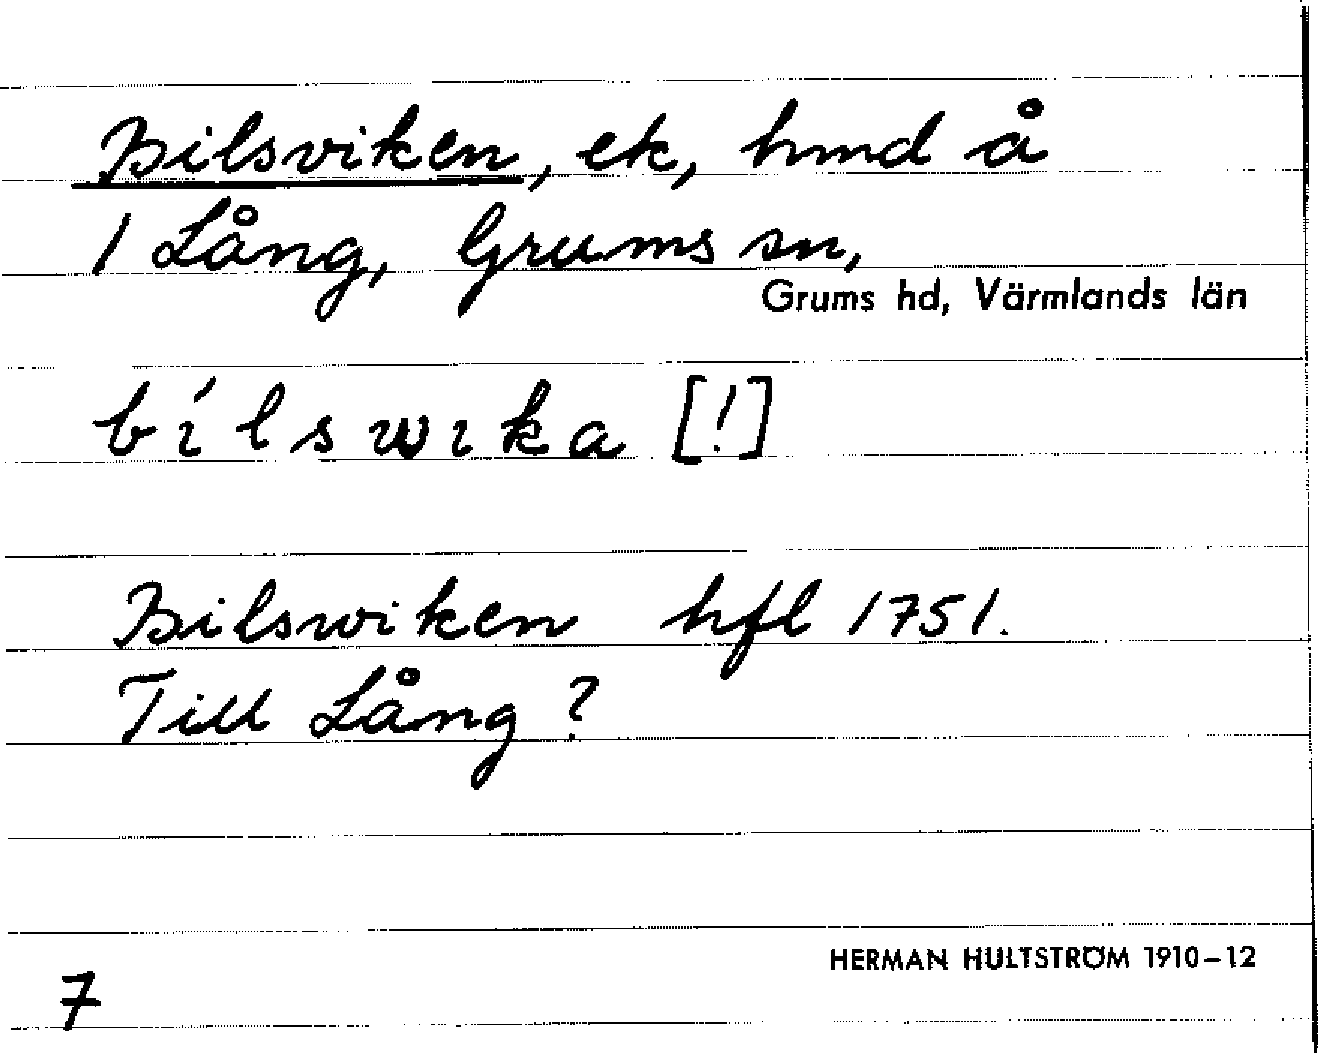 Bilsviken, ek, hmd å
1 Lång, Grums sn,
Grums hd, Värmlands län
bɩ́lswɩka [!]
Bilswiken hfl 1751.
Till Lång?
HERMAN HULTSTRÖM 1910–12
7